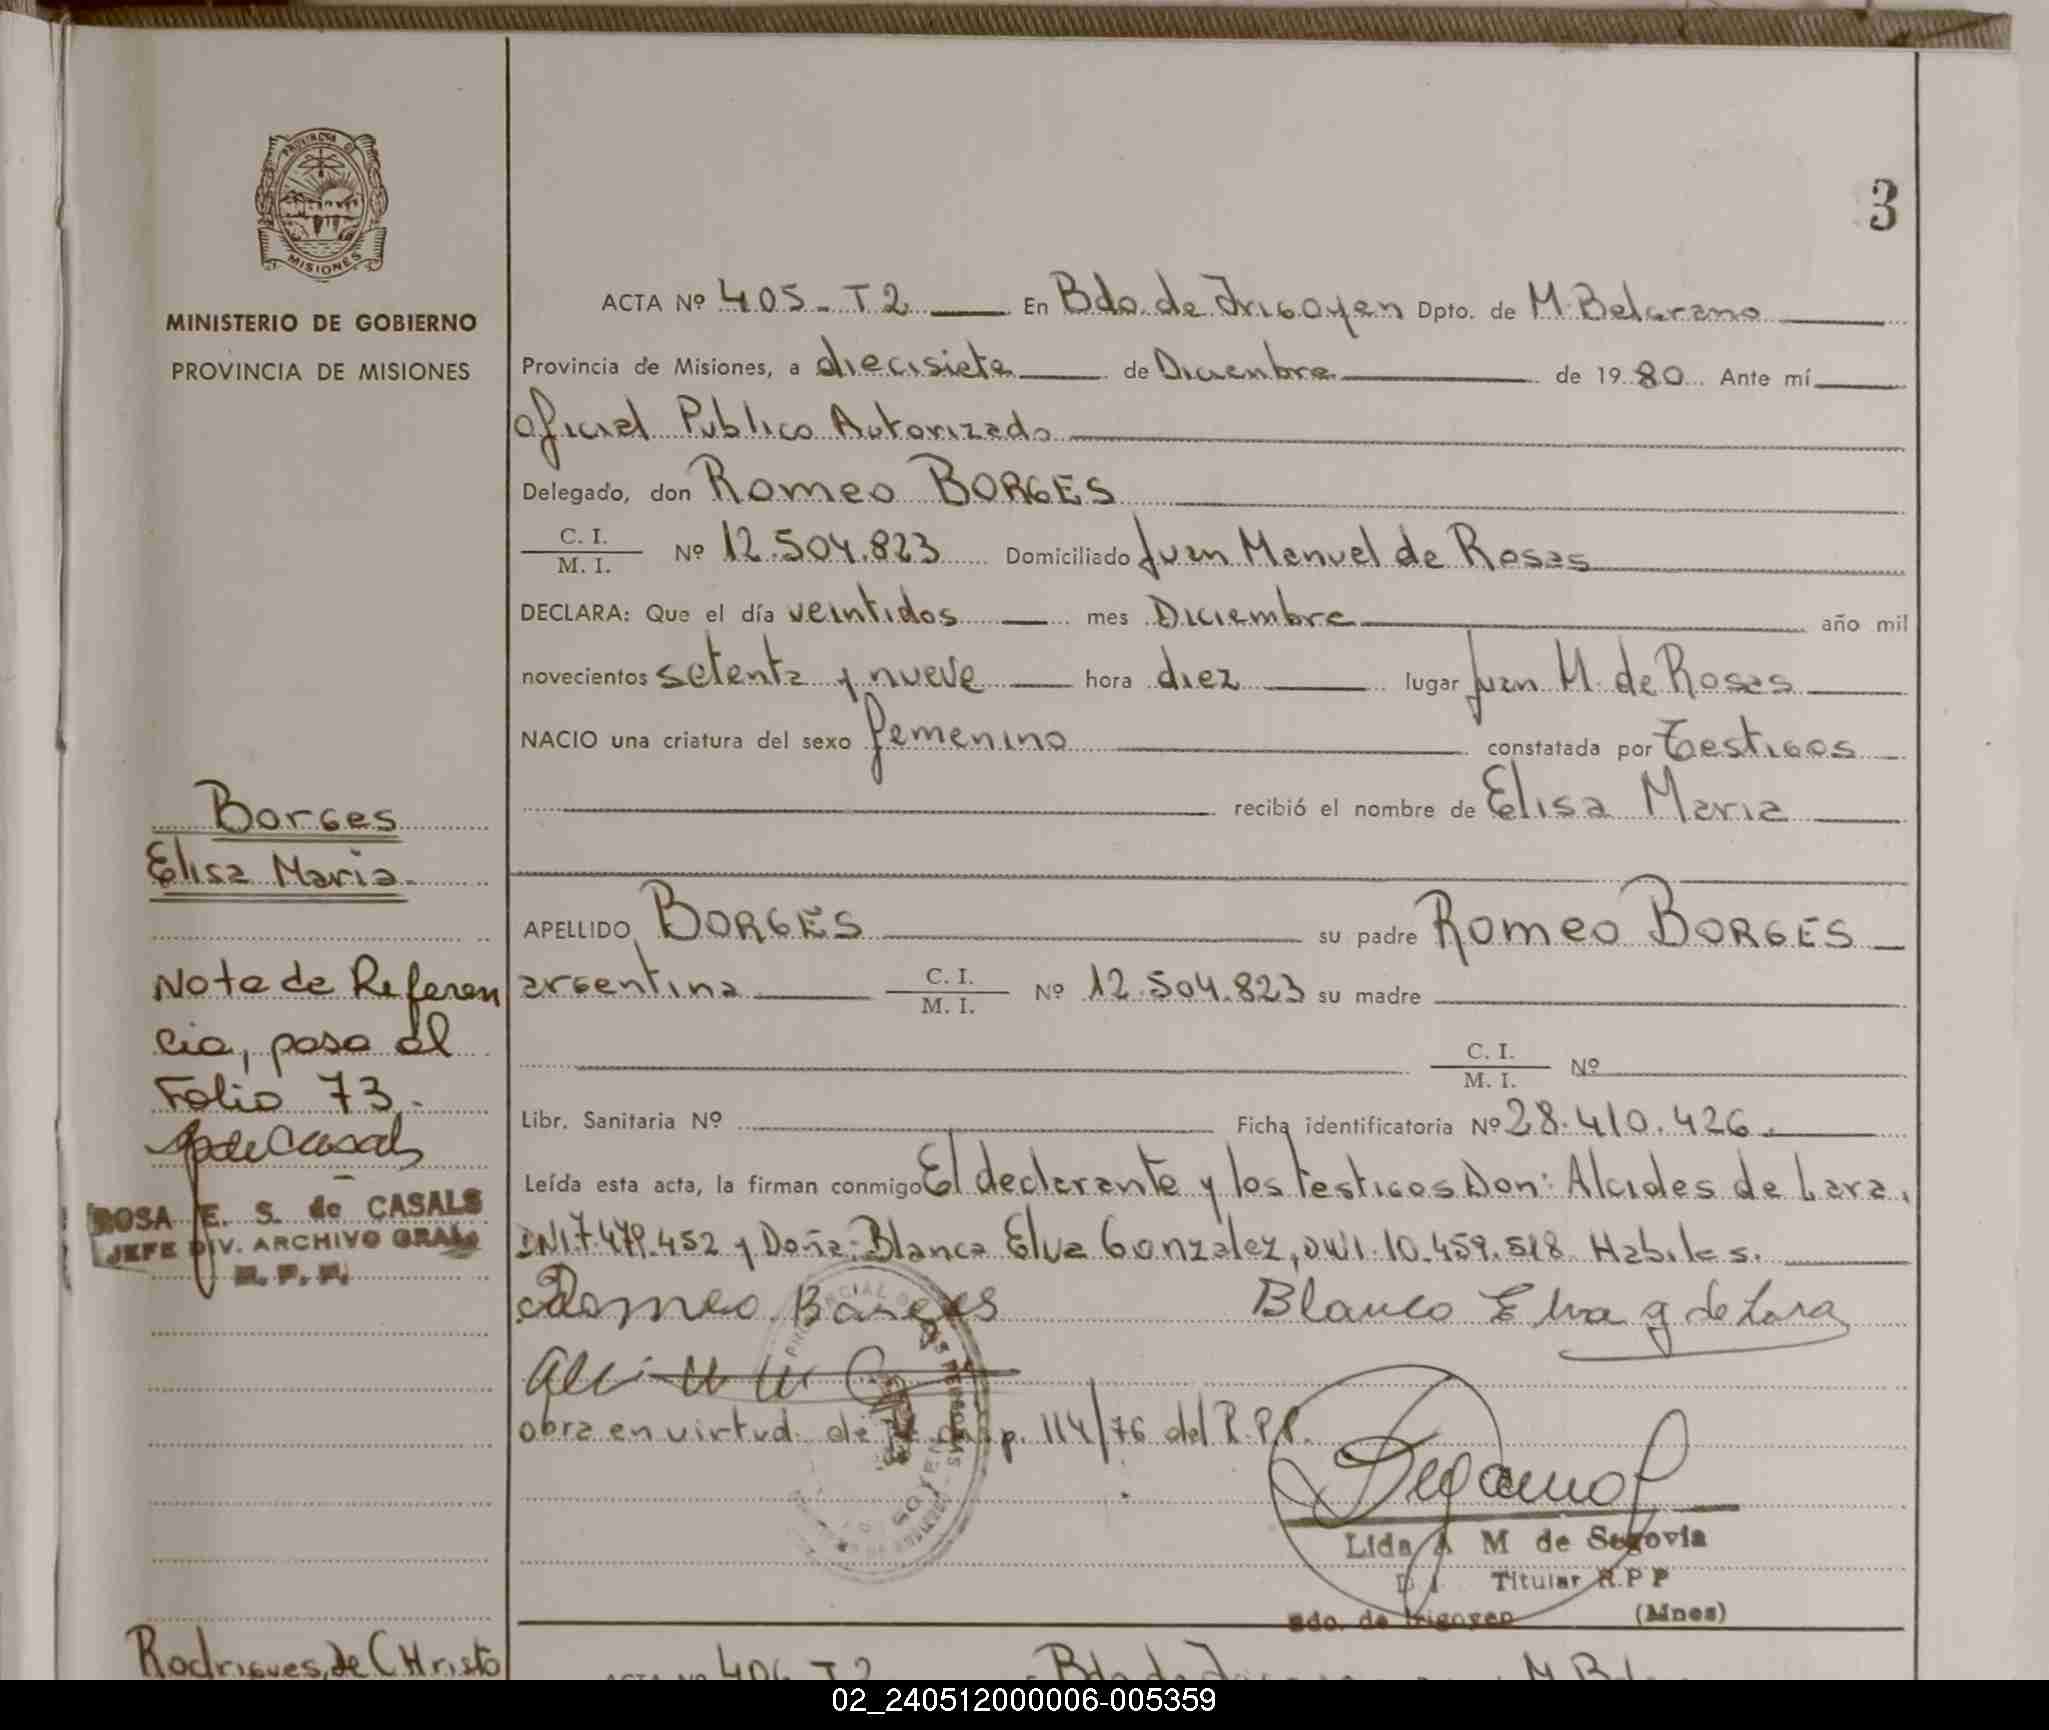 PROVINCIA DE
MISIONES
MINISTERIO DE GOBIERNO
PROVINCIA DE MISIONES
3
ACTA Nº 405-T2 En Bdo. de Irigoyen Dpto. de M. Belgrano
Provincia de Misiones, a diecisiete de Diciembre de 1980 Ante mí
Oficial Publico Autorizado
Delegado, don Romeo BORGES
C. I.
M. I. Nº 12.504.823 Domiciliado Juan Manuel de Rosas
DECLARA: Que el día veintidos mes Diciembre año mil
novecientos setenta y nueve hora diez lugar Juan M. de Rosas
NACIO una criatura del sexo femenino constatada por Testigos
recibió el nombre de Elisa Maria
APELLIDO BORGES su padre Romeo BORGES
argentina C. I.
M. I. Nº 12.504.823 su madre
C. I.
M. I. Nº
Libr. Sanitaria Nº Ficha identificatoria Nº 28.410.426.
Leída esta acta, la firman conmigo El declarante y los testigos Don: Alcides de Lara,
DNI 7.479.452 y Doña: Blanca Elva Gonzalez, DNI. 10.459.518 Habiles.
Romeo Borges Blanca Elva g de Lara
obra en virtud de disp. 114/76 del R.P.P.
Lida A M de Segovia
D I Titular R.P P
Bdo. de Irigoyen (Mnes)
Borges
Elisa Maria.
Nota de Referen
cia, pasa al
Folio 73.
ROSA E. S. de CASALS
JEFE DIV. ARCHIVO GRAL.
R. P. P.
Rodrigues de CHristo
ACTA Nº 406 T2
02_240512000006-005359